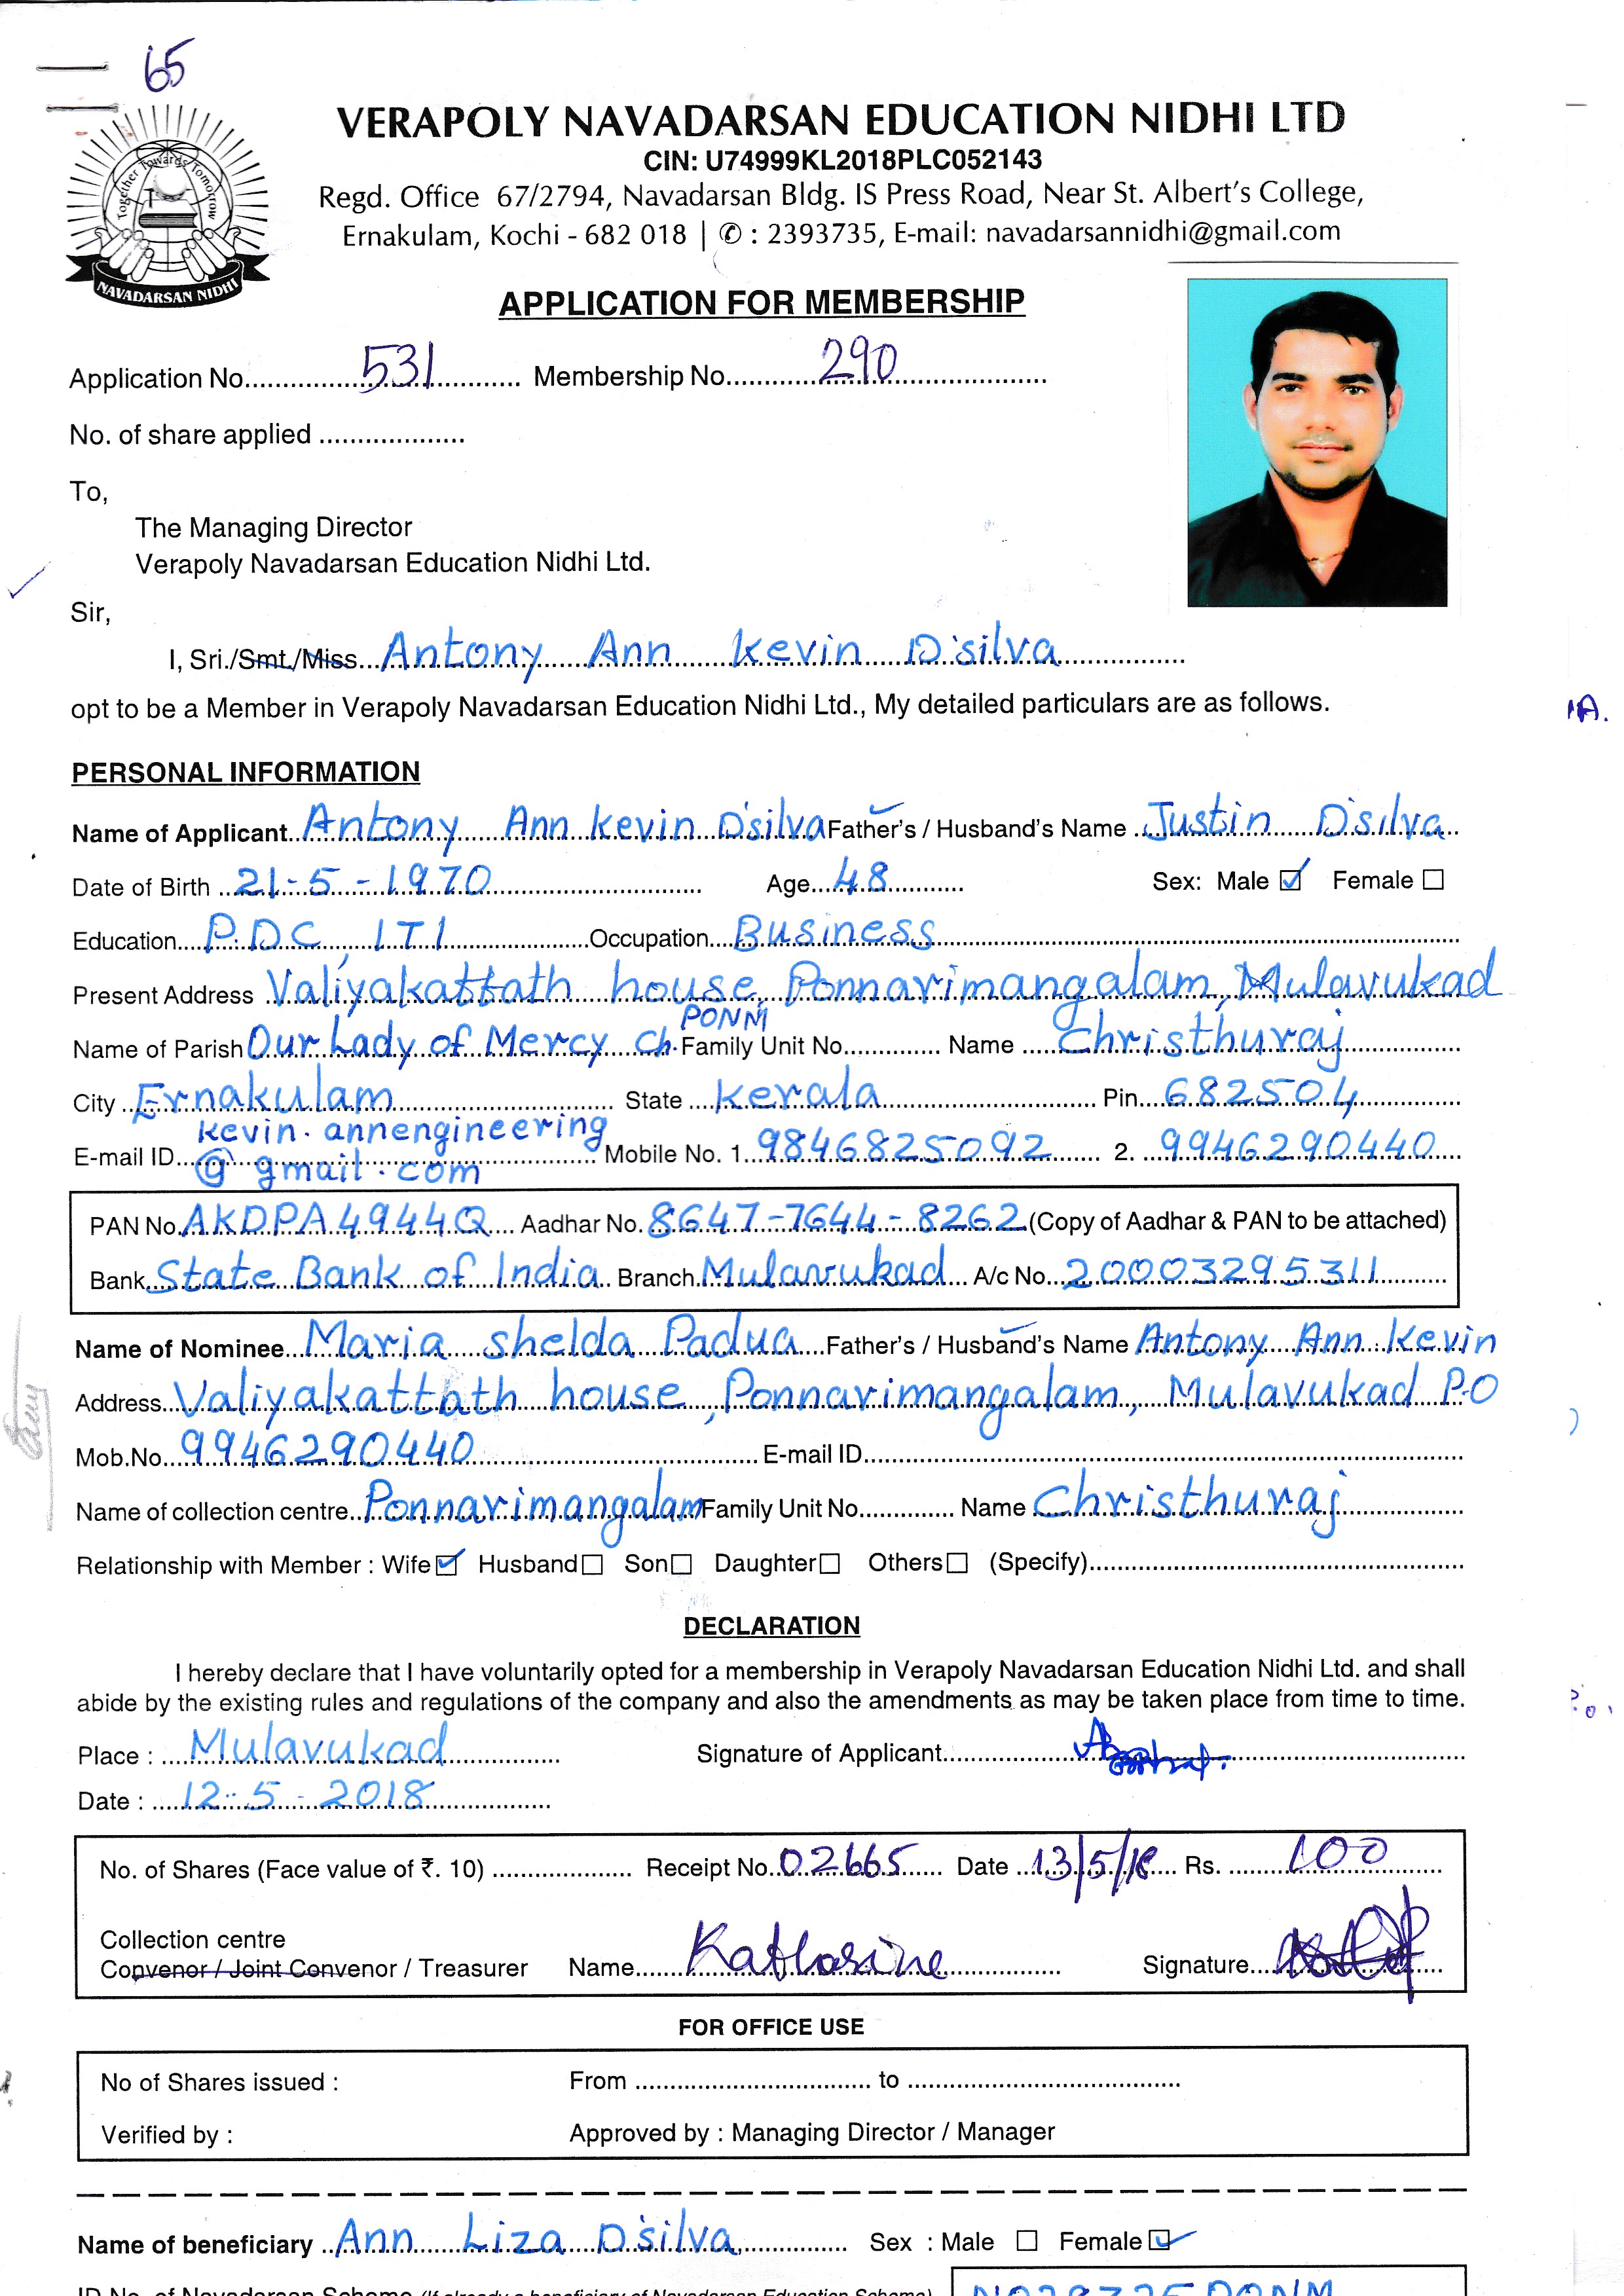 65
Together Towards Tomorrow
NAVADARSAN NIDHI
VERAPOLY NAVADARSAN EDUCATION NIDHI LTD
CIN: U74999KL2018PLC052143
Regd. Office 67/2794, Navadarsan Bldg. IS Press Road, Near St. Albert's College,
Ernakulam, Kochi - 682 018 | ✆ : 2393735, E-mail: navadarsannidhi@gmail.com
APPLICATION FOR MEMBERSHIP
Application No. 531 Membership No. 290
No. of share applied ..................
To,
The Managing Director
Verapoly Navadarsan Education Nidhi Ltd.
Sir,
I, Sri./Smt./Miss Antony Ann Kevin D'silva
opt to be a Member in Verapoly Navadarsan Education Nidhi Ltd., My detailed particulars are as follows.
PERSONAL INFORMATION
Name of Applicant Antony Ann Kevin D'silva Father's / Husband's Name Justin D'silva
Date of Birth 21-5-1970 Age 48 Sex: Male ☑ Female ☐
Education P.D.C, ITI Occupation Business
Present Address Valiyakattath house, Ponnarimangalam, Mulavukad
PONM
Name of Parish Our Lady of Mercy Ch. Family Unit No............. Name Christhuraj
City Ernakulam State Kerala Pin 682504
kevin.annengineering
E-mail ID @gmail.com Mobile No. 1. 9846825092 2. 9946290440
PAN No. AKDPA4944Q Aadhar No. 8647-7644-8262 (Copy of Aadhar & PAN to be attached)
Bank State Bank of India Branch Mulavukad A/c No. 20003295311
Name of Nominee Maria Shelda Padua Father's / Husband's Name Antony Ann Kevin
Address Valiyakattath house, Ponnarimangalam, Mulavukad P.O
Mob.No. 9946290440 E-mail ID
Name of collection centre Ponnarimangalam Family Unit No............. Name Christhuraj
Relationship with Member : Wife ☑ Husband ☐ Son ☐ Daughter ☐ Others ☐ (Specify)
DECLARATION
I hereby declare that I have voluntarily opted for a membership in Verapoly Navadarsan Education Nidhi Ltd. and shall
abide by the existing rules and regulations of the company and also the amendments as may be taken place from time to time.
Place : Mulavukad Signature of Applicant
Date : 12-5-2018
No. of Shares (Face value of ₹. 10) .................. Receipt No. 02665 Date 13/5/18 Rs. 100
Collection centre
Convenor / Joint Convenor / Treasurer Name Katharine Signature
FOR OFFICE USE
No of Shares issued : From .................. to ..................
Verified by : Approved by : Managing Director / Manager
Name of beneficiary Ann Liza D'silva Sex : Male ☐ Female ☑